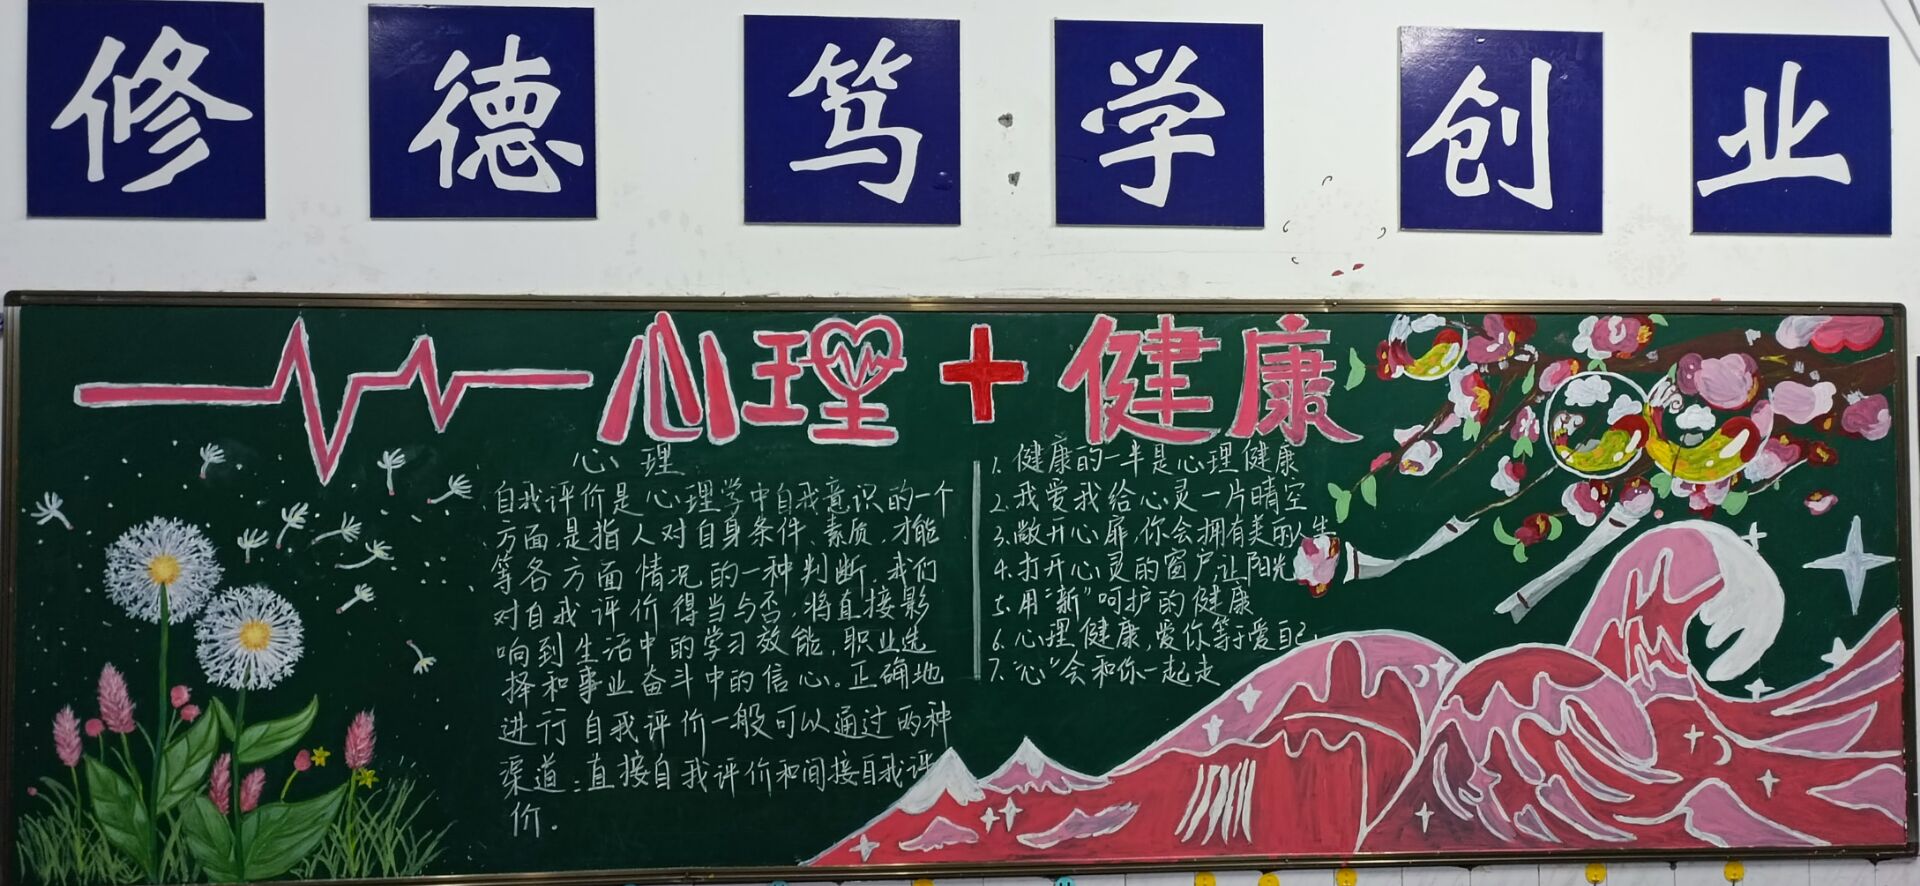 修德笃学创业
心理+健康
心理
自我评价是心理学中自我意识的一个
方面,是指人对自身条件、素质、才能
等各方面情况的一种判断,我们
对自我评价得当与否,将直接影
响到生活中的学习效能,职业选
择和事业奋斗中的信心。正确地
进行自我评价一般可以通过两种
渠道:直接自我评价和间接自我评
价.
1.健康的一半是心理健康
2.我爱我给心灵一片晴空
3.敞开心扉,你会拥有美的人生
4.打开心灵的窗户,让阳光
5.用“新”呵护的健康
6.心理健康,爱你等于爱自己.
7.“心”会和你一起走